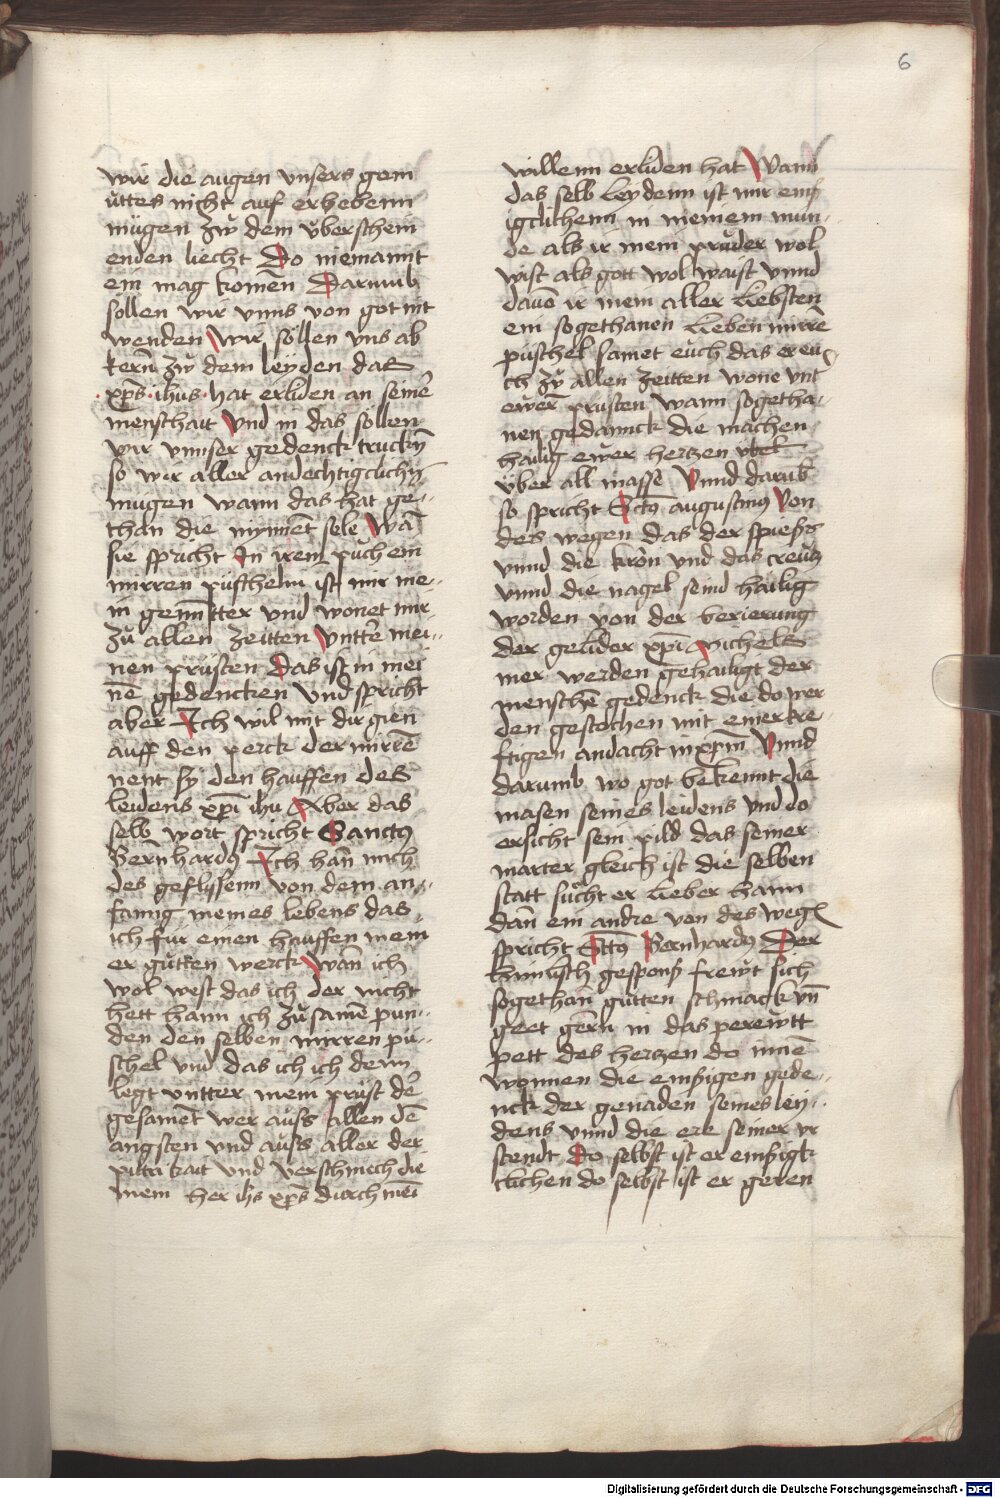 6
wir die augen unsers gem
üttes nicht auf erhebenn
mügen zw dem überschein
enden liecht Do niemannt
ein mag komen̄ Darumb
sollen wir vnns von got nit
wenden Wir söllen vns ab
kern̄ zw dem leÿden das
xp̄s ihūs hat erliden an seinē
menschait Vnd in das sollen
wir vnnser gedenck truckn̄
so wir aller andechtigclichn̄
mugen wann das hat ge-
than die mynnēt sele Wān
sie spricht In irem puch ein
mirren püsthelin ist mir me-
in gemītter vnd wonet mir
zü allen zeitten Vnttēr mei-
nen prüsten Das ist in mei
nē gedencken Vnd spricht
aber Ich wil mit dir gien
auff den perck der mirrē
nent sy den hauffen des
leidens xp̄i ihū Aber das
selb wort spricht Sanctus
Bern̄hardus Ich han̄ mich
des geflyssenn von dem an-
fanng meines lebens das
ich für einen hauffen mein
er gutten werck Wān ich
wol west das ich der nicht
hett hann ich zü samē pun-
den den selben mirren pü-
schel vnd das ich ich denn
legt vntter mein prüst dē
gesamēt wer auss allen dē
angsten vnd auss aller der
pitterkait vnd verschmech die
mein her ihs xp̄s durch mein̄
willenn erliden hat Wann
das selb leydenn ist mir empß
igclichenn in meinem mun-
de als ir mein pruder wol
wist als gott wol waist Vnnd
dauō ir mein aller liebsten
ein sogethanen lieben mirrē
püschel samet eüch das er eu-
ch zü allen zeitten wone vnt
ewer̄ prüsten wann sogetha-
nen gedannck die machen
hailig ewer hertzen vbel
über all masse Vnnd darub̄
so spricht Sctūs augustinus Von
des wegen das der spiehs
vnnd die krön vnd das creütz
vnnd die nagel seind hailig
worden von der berierung
der gelider xp̄i Wichels
mer werden gehailigt der
menschē gedenck die do wer
den gestochen mit einer kre-
ftigen andacht in xp̄m Vnnd
darumb wo got bekennt die
masen seines leidens vnd do
ersicht sein pild das seiner
marter gleich ist die selben
statt sücht er lieber hann
dan̄ ein andre von des wegn̄
spricht Sctūs Bernhardus Der
himlisch gesponß frewt sich
sogethan̄ gutten schmack vn̄
geet gern̄ in das perewtt
pett des hertzen do innē
wonnen die empßigen gede-
nck der genaden seines ley-
dens vnnd die ere seiner vr
stendt Do selbst ist er empßigk
clichen do selbst ist er geren
Digitalisierung gefördert durch die Deutsche Forschungsgemeinschaft - DFG